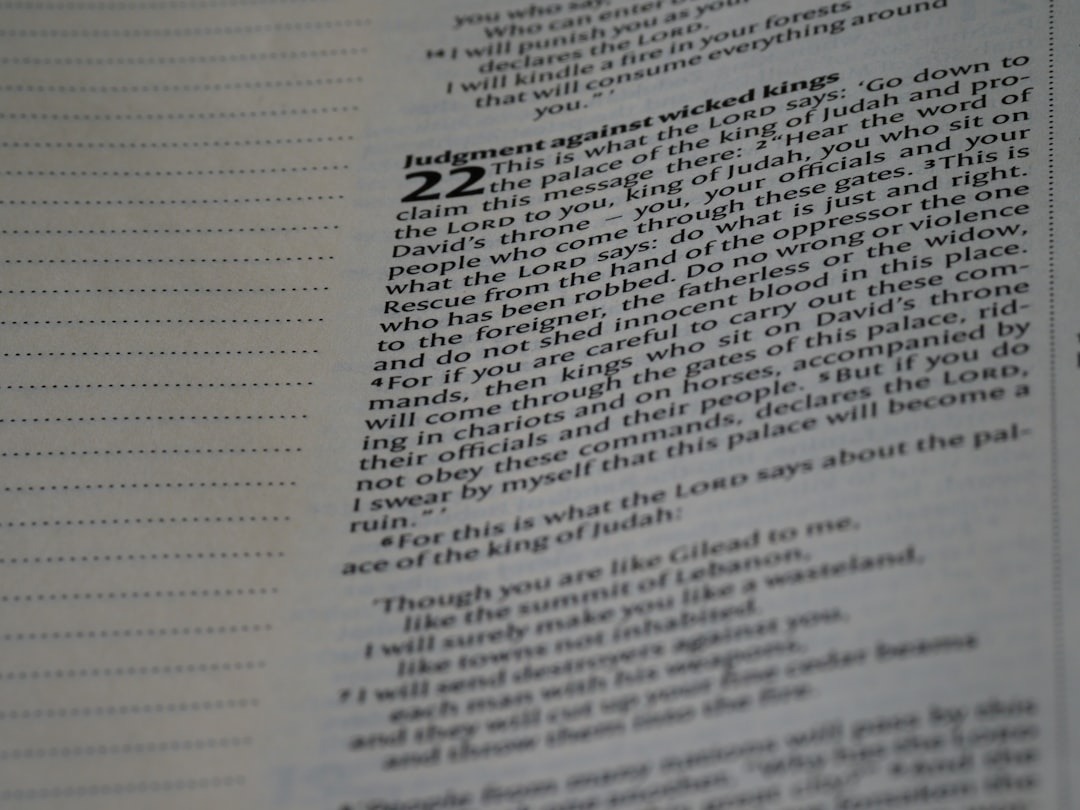 you who say,
Who can enter
¹⁴ I will punish you as your
declares the LORD.
I will kindle a fire in your forests
that will consume everything around
you.” ’
Judgment against wicked kings
22 This is what the LORD says: ‘Go down to
the palace of the king of Judah and pro-
claim this message there: ² “Hear the word of
the LORD to you, king of Judah, you who sit on
David’s throne – you, your officials and your
people who come through these gates. ³ This is
what the LORD says: do what is just and right.
Rescue from the hand of the oppressor the one
who has been robbed. Do no wrong or violence
to the foreigner, the fatherless or the widow,
and do not shed innocent blood in this place.
⁴ For if you are careful to carry out these com-
mands, then kings who sit on David’s throne
will come through the gates of this palace, rid-
ing in chariots and on horses, accompanied by
their officials and their people. ⁵ But if you do
not obey these commands, declares the LORD,
I swear by myself that this palace will become a
ruin.” ’
⁶ For this is what the LORD says about the pal-
ace of the king of Judah:
‘Though you are like Gilead to me,
like the summit of Lebanon,
I will surely make you like a wasteland,
like towns not inhabited.
⁷ I will send destroyers against you,
each man with his weapons,
and they will cut up your fine cedar beams
and throw them into the fire.
People from many nations will pass by this